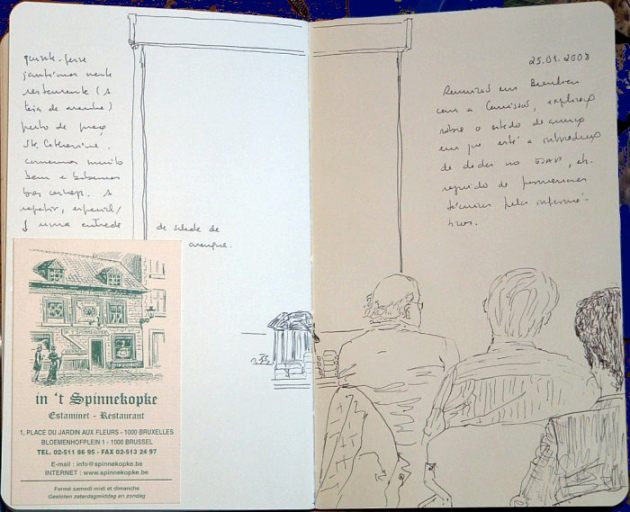 quinta-feira
jantámos neste
restaurante (a
teia de aranha)
perto da praça
Ste. Catherine.
comemos muito
bem e bebemos
boas cervejas. a
repetir,
uma entrada de salada de
arenque.
in 't Spinnekopke
Estaminet - Restaurant
1, PLACE DU JARDIN AUX FLEURS - 1000 BRUXELLES
BLOEMENHOFPLEIN 1 - 1000 BRUSSEL
TEL. 02-511 86 95 - FAX 02-513 24 97
E-mail : info@spinnekopke.be
INTERNET : www.spinnekopke.be
Fermé samedi midi et dimanche
Gesloten zaterdagmiddag en zondag
25.01.2008
Reunião em Bruxelas
com a Comissão,
sobre o estado de avanço
em que está a introdução
de dados no
de pormenores
técnicos pelos informá-
ticos.